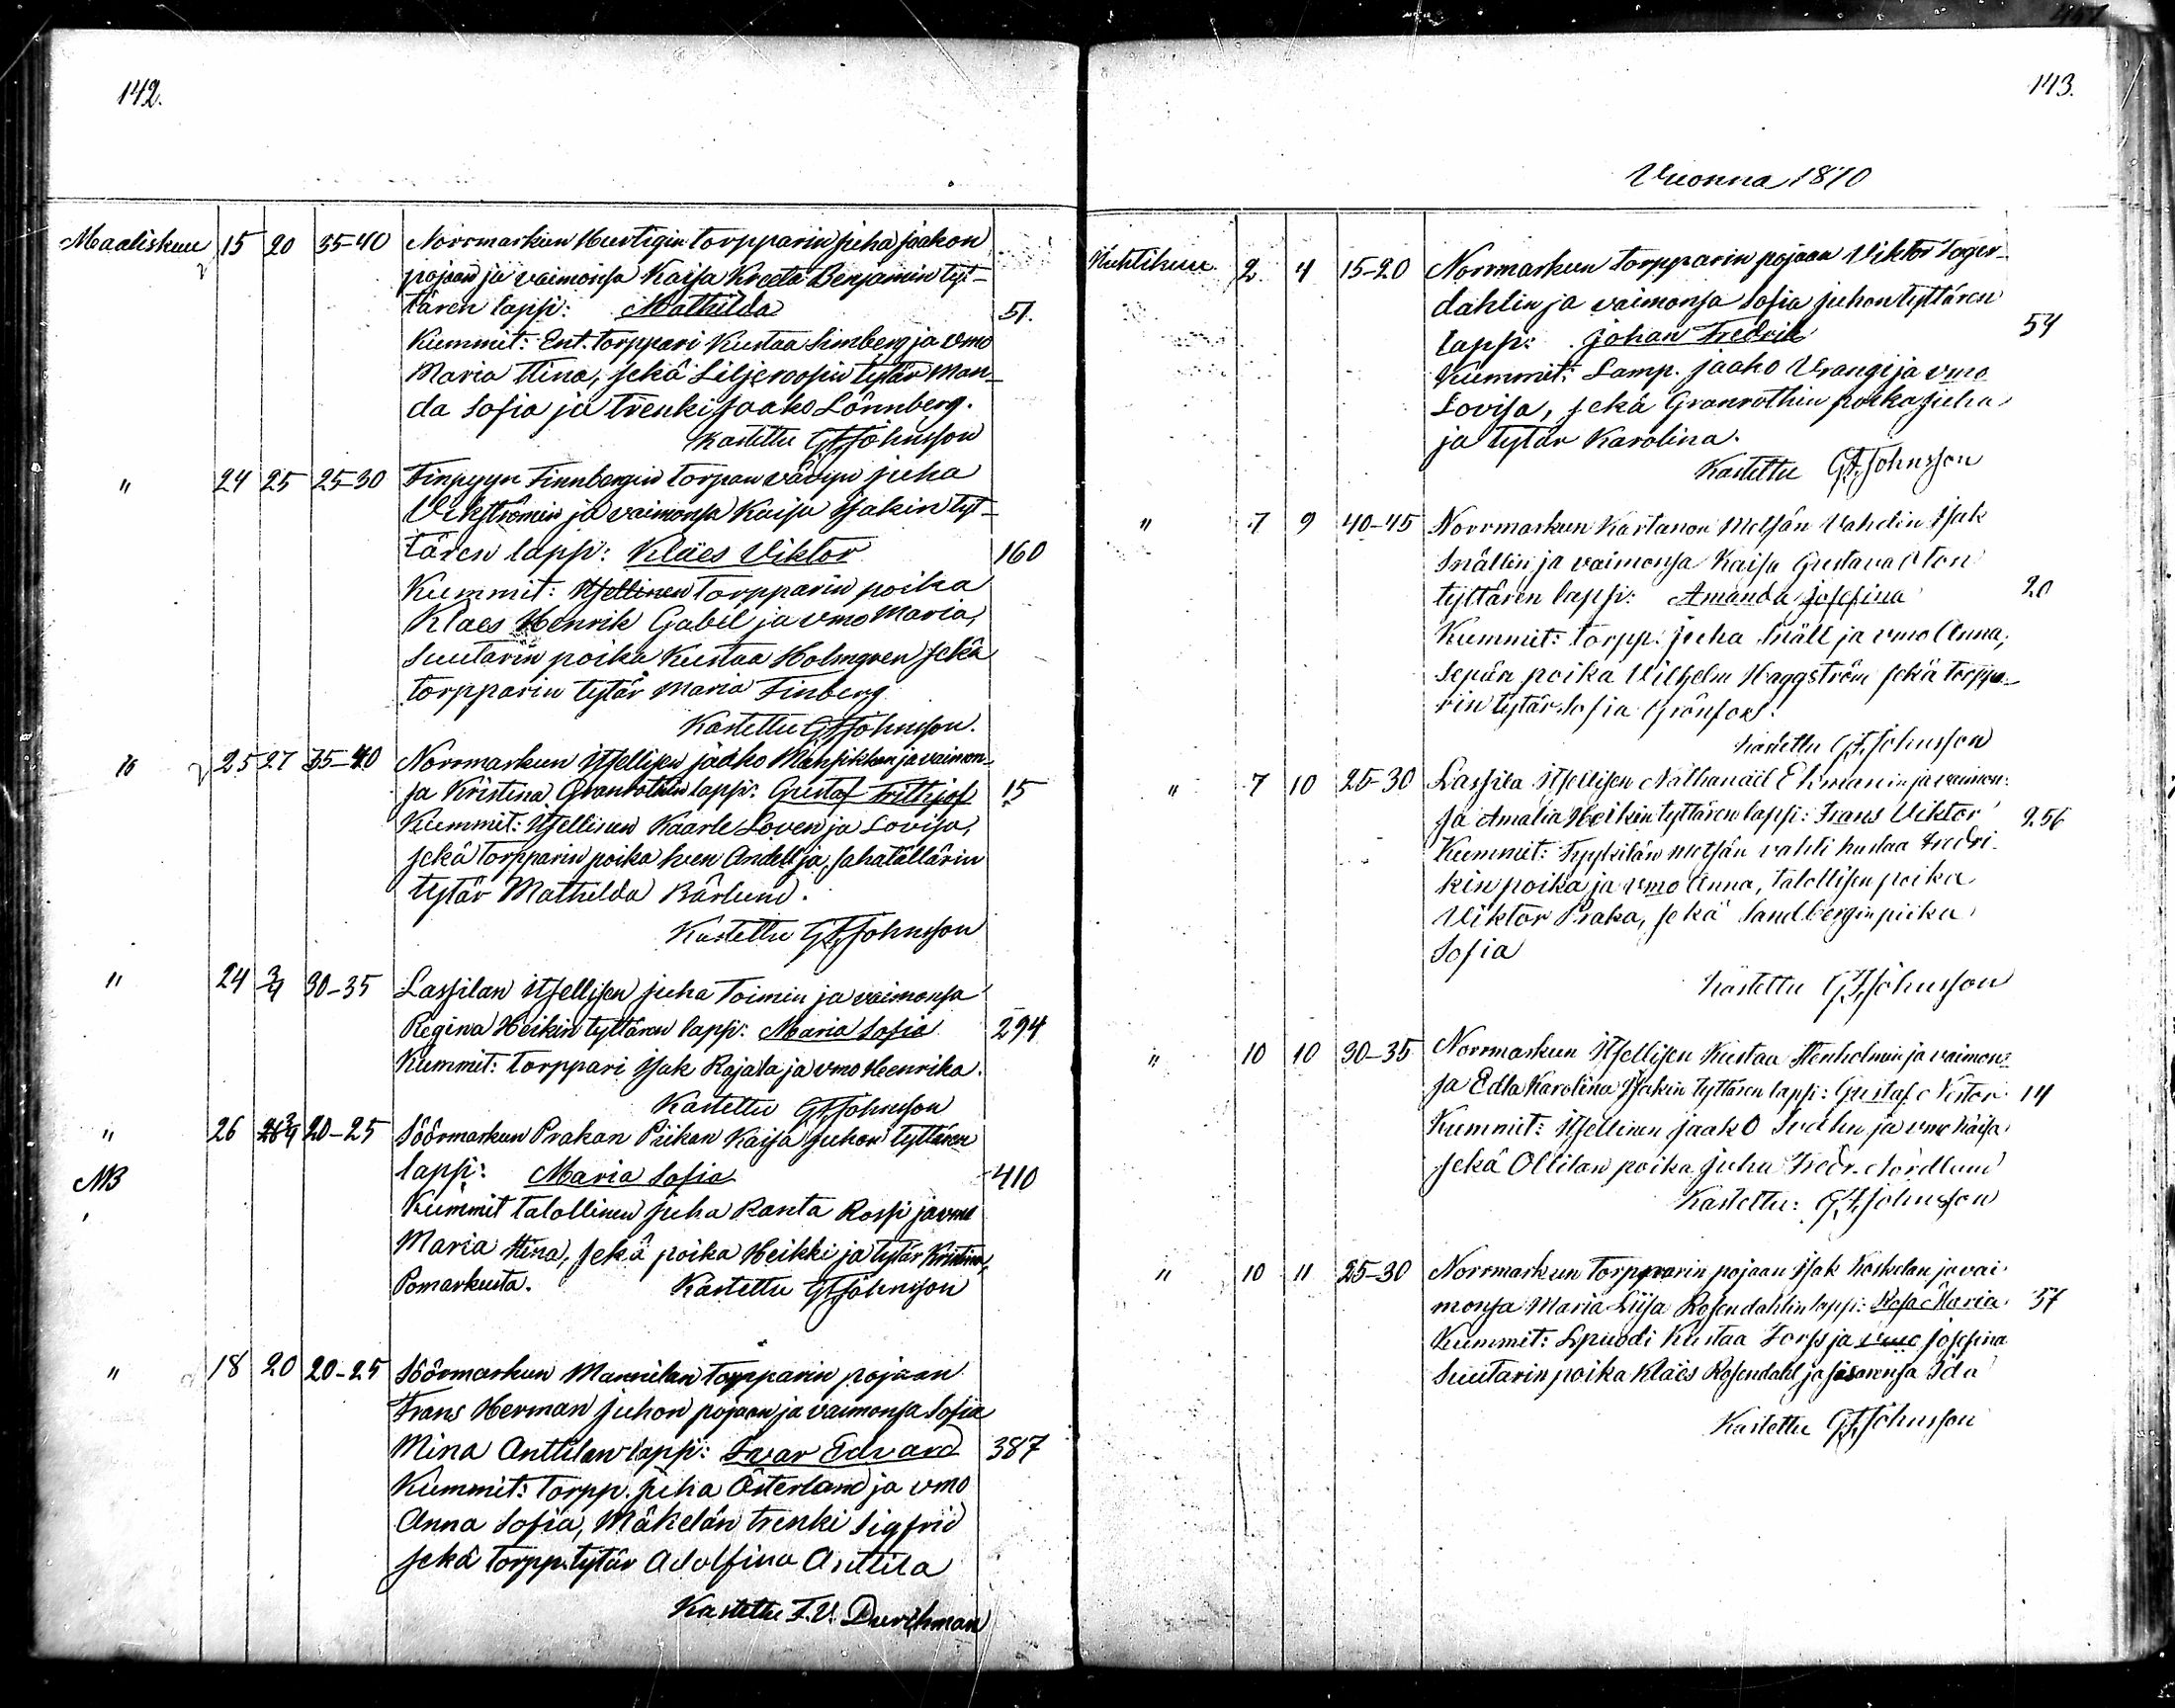 142.
Maaliskuu 15 20 35-40 Norrmarkun Hurtigin torpparin Juha Jaakon
pojan ja vaimonsa Kaisa Kreeta Benjamin tyt-
tären lapsi: Mathilda 51.
Kummit: Ent. torppari Kustaa Simberg ja vmo
Maria Stina, sekä Liljeroosin tytär Man-
da Sofia ja trenki Jaako Lönnberg.
Kastettu G.F. Johnsson
" 24 25 25-30 Finpyyn Finnbergin torpan vävyn Juha
Vikströmin ja vaimonsa Kaisa Isakin tyt-
tären lapsi: Kläes Viktor 160
Kummit: Itsellinen Torpparin poika
Klaes Henrik Gabel ja vmo Maria,
Suutarin poika Kustaa Holmgren sekä
torpparin tytär Maria Finberg
Kastettu G.F. Johnsson.
" 25 27 35-40 Norrmarkun Itsellisen Jaako Mansikkan ja vaimon-
sa Kristina Granrothin lapsi: Gustaf Frithjof 15
Kummit: Itsellinen Kaarle Loven ja Lovisa,
sekä torpparin poika Iven Andell ja Sahatällärin
tytär Mathilda Bärlund.
Kastettu G.F. Johnsson
" 24 3/4 30-35 Lassilan Itsellisen Juha Toimin ja vaimonsa
Regina Heikin tyttären lapsi: Maria Sofia 294
Kummit: torppari Isak Rajala ja vmo Henrika.
Kastettu G.F. Johnsson
" 26 3/4 20-25 Söörmarkun Prakan Piikan Kaisa Juhon tyttären
NB lapsi: Maria Sofia 410
Kummit talollinen Juha Ranta Rossi ja vmo
Maria Stina, sekä poika Heikki ja tytär Kristina,
Pomarkusta. Kastettu G.F. Johnsson
" 18 20 20-25 Söörmarkun Mannilan torpparin pojan
Frans Herman Juhon pojan ja vaimonsa Sofia
Mina Anttilan lapsi: Ivar Edvard 387
Kummit: torpp. Juha Österland ja vmo
Anna Sofia, Mäkelän trenki Sigfrid
sekä torpp. tytär Adolfina Anttila
Kastettu F.V. Durchman
143.
Vuonna 1870
Huhtikuu 2 4 15-20 Norrmarkun torpparin pojan Viktor Toger-
dahlin ja vaimonsa Sofia Juhon tyttären
lapsi: Johan Fredrik 54
Kummit: Lamp. Jaako Vrangi ja vmo
Lovisa, sekä Granrothin poika Juha
ja tytär Karolina.
Kastettu G.F. Johnsson
" 7 9 40-45 Norrmarkun Kartanon Metsän Vahdin Isak
Snällin ja vaimonsa Kaisa Gustava Oton
tyttären lapsi: Amanda Josefina 20
Kummit: torpp. Juha Snäll ja vmo Anna,
Sepän poika Vilhelm Haggström sekä torppa-
rin tytär Sofia Grönfors.
Kastettu G.F. Johnsson
" 7 10 25-30 Lassila Itsellisen Nathanaël Ekmanin ja vaimon-
sa Amalia Heikin tyttären lapsi: Frans Viktor 256
Kummit: Tyykilän metsän vahti Kustaa Fredri-
kin poika ja vmo Anna, talollisen poika
Viktor Praka, sekä Sandbergin piika
Sofia
Kastettu G.F. Johnsson
" 10 10 30-35 Norrmarkun Itsellisen Kustaa Stenholmin ja vaimon-
sa Edla Karolina Isakin tyttären lapsi: Gustaf Nestor 14
Kummit: Itsellinen Jaako ja vmo Kaisa
sekä Ollilan poika Juha Fredr. Nordlund
Kastettu: G.F. Johnsson
" 10 11 25-30 Norrmarkun Torpparin pojan Isak Koskelan ja vai-
monsa Maria Liisa Rosendahlin lapsi: Rosa Maria 57
Kummit: Kustaa Forss ja vmo Josefina
Suutarin poika Kläes Rosendahl ja sisarensa Ida
Kastettu G.F. Johnsson